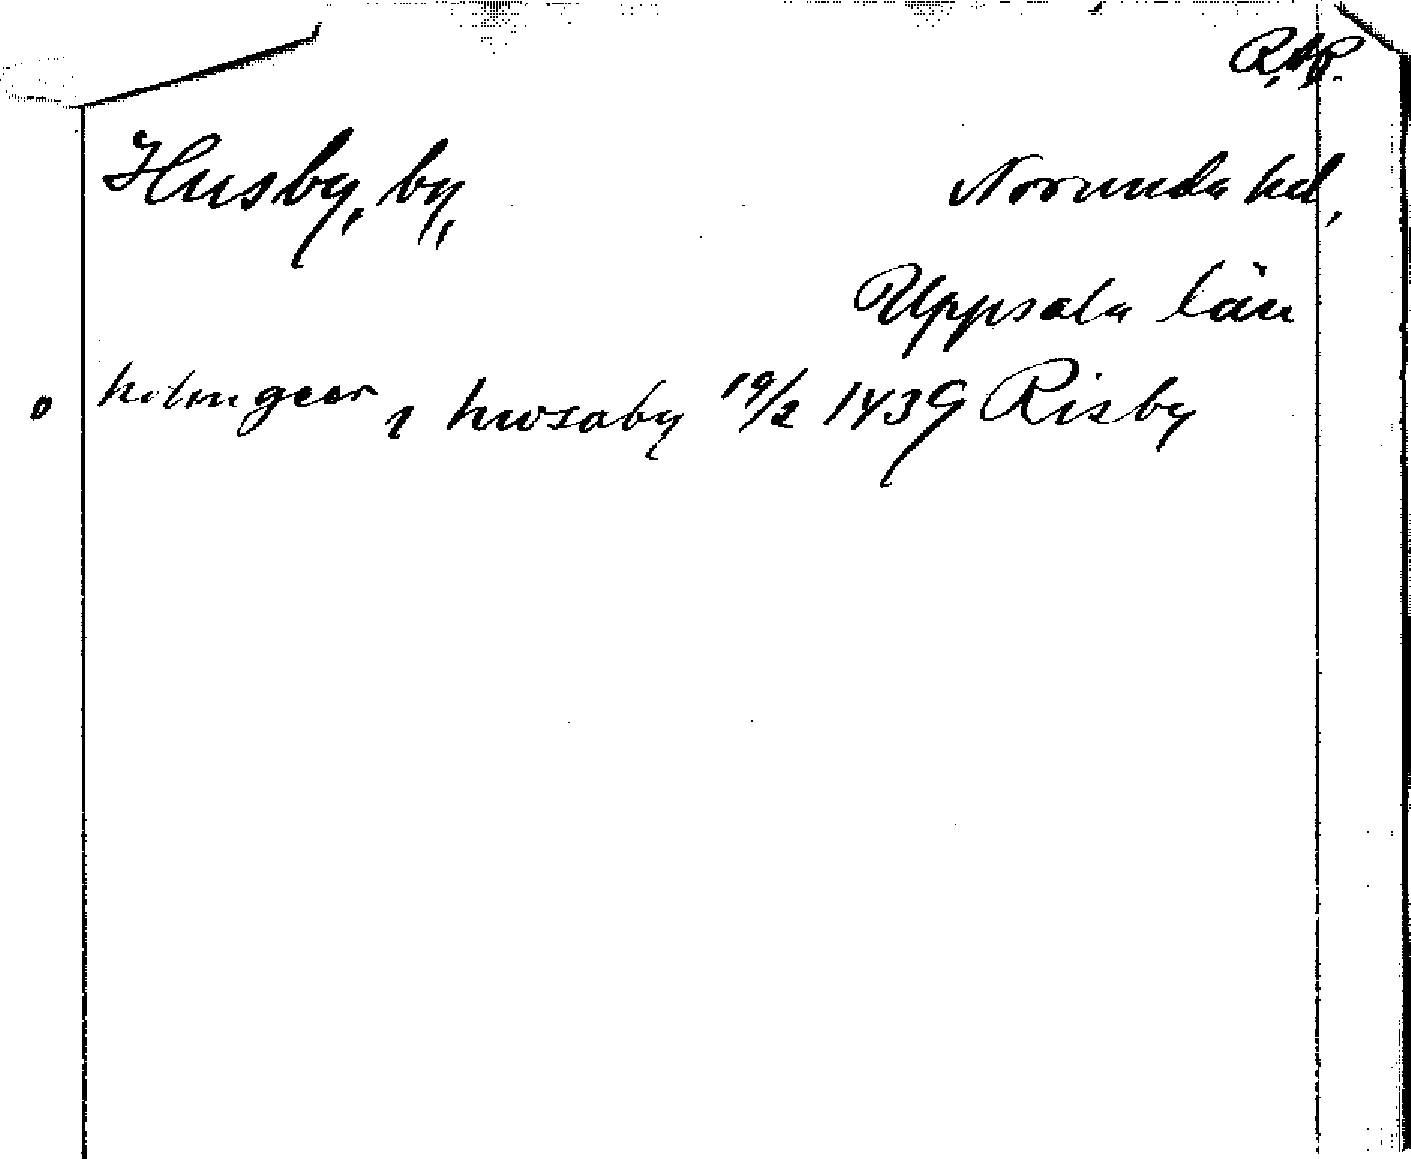 R.A.P.
Husby, by,, Norunda hd,
Uppsala län
holmgeer j hwsaby 19/2 1439 Risby